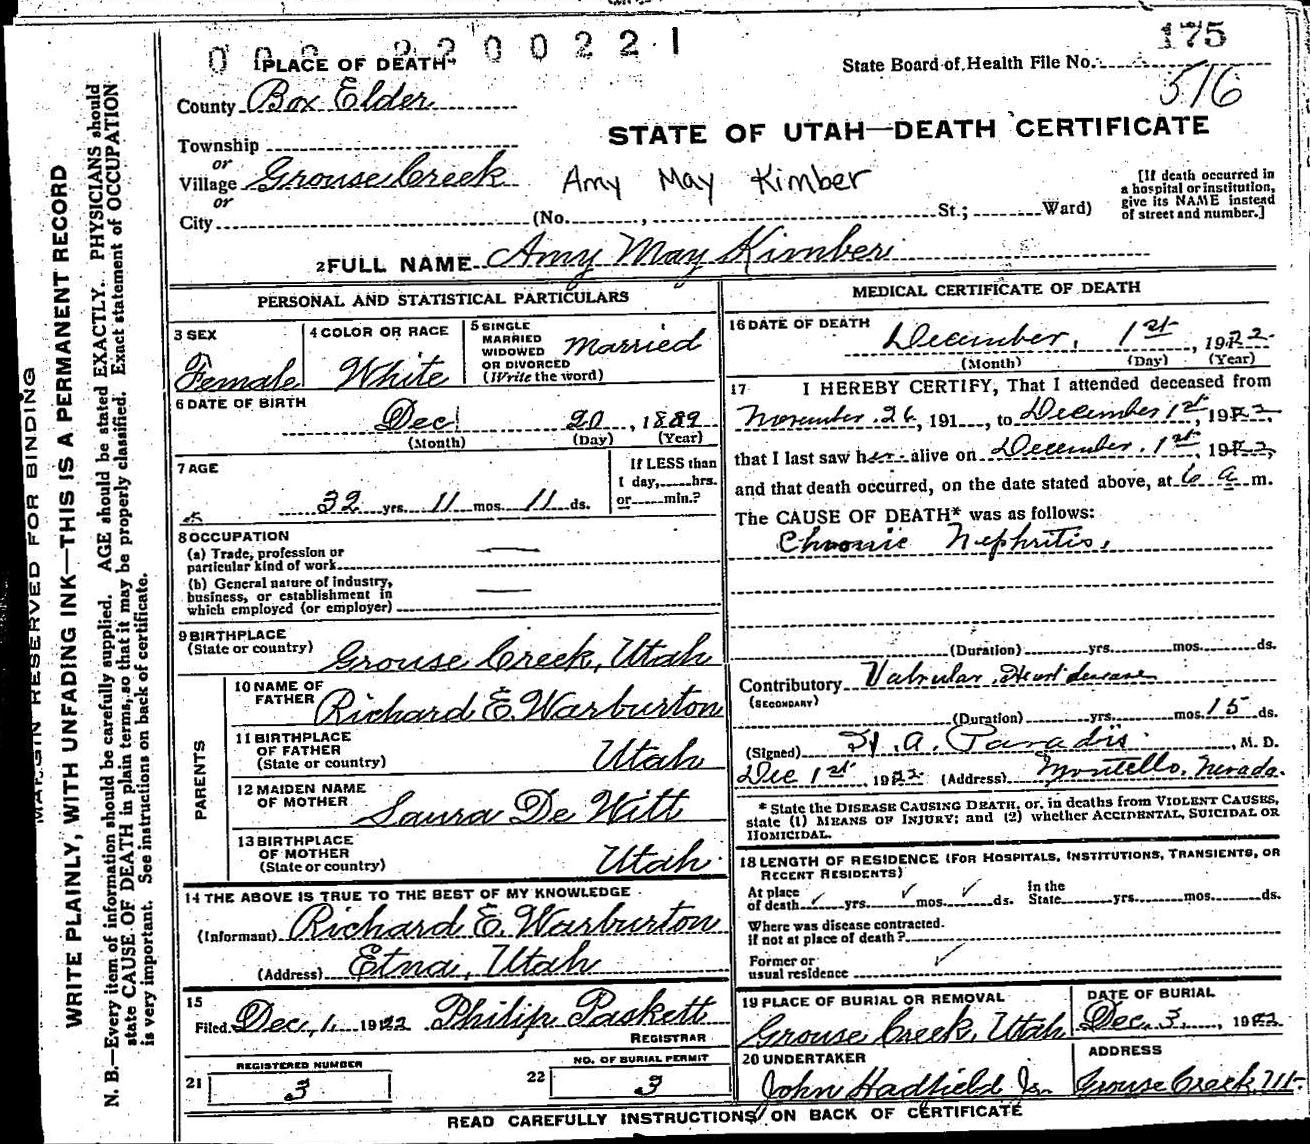 0 0 2 2 2 0 0 2 2 1
175
PLACE OF DEATH
State Board of Health File No.
516
County Box Elder
STATE OF UTAH—DEATH CERTIFICATE
Township
or
Village Grouse Creek Amy May Kimber
or
City (No. , St.; Ward)
[If death occurred in
a hospital or institution,
give its NAME instead
of street and number.]
2 FULL NAME Amy May Kimber
PERSONAL AND STATISTICAL PARTICULARS
3 SEX
Female
4 COLOR OR RACE
White
5 SINGLE
MARRIED
WIDOWED
OR DIVORCED
(Write the word)
Married
6 DATE OF BIRTH
Dec 20, 1889
(Month) (Day) (Year)
7 AGE
32 yrs. 11 mos. 11 ds.
If LESS than
1 day, hrs.
or min.?
8 OCCUPATION
(a) Trade, profession or
particular kind of work
(b) General nature of industry,
business, or establishment in
which employed (or employer)
9 BIRTHPLACE
(State or country) Grouse Creek, Utah
PARENTS
10 NAME OF
FATHER Richard E. Warburton
11 BIRTHPLACE
OF FATHER
(State or country) Utah
12 MAIDEN NAME
OF MOTHER Laura De Witt
13 BIRTHPLACE
OF MOTHER
(State or country) Utah
14 THE ABOVE IS TRUE TO THE BEST OF MY KNOWLEDGE
(Informant) Richard E. Warburton
(Address) Etna, Utah
15
Filed Dec. 1, 1922 Philip Paskett
REGISTRAR
21 REGISTERED NUMBER
3
22 NO. OF BURIAL PERMIT
3
MEDICAL CERTIFICATE OF DEATH
16 DATE OF DEATH
December, 1st, 1922
(Month) (Day) (Year)
17 I HEREBY CERTIFY, That I attended deceased from
November 26, 191 , to December 1st, 1922
that I last saw her alive on December 1st, 1922,
and that death occurred, on the date stated above, at 6 a m.
The CAUSE OF DEATH* was as follows:
Chronic Nephritis.
(Duration) yrs. mos. ds.
Contributory Valvular Heart disease
(SECONDARY)
(Duration) yrs. mos. 15 ds.
(Signed) H. A. Paradis, M. D.
Dec 1st 1922 (Address) Montello, Nevada.
* State the DISEASE CAUSING DEATH, or, in deaths from VIOLENT CAUSES,
state (1) MEANS OF INJURY; and (2) whether ACCIDENTAL, SUICIDAL OR
HOMICIDAL.
18 LENGTH OF RESIDENCE (FOR HOSPITALS, INSTITUTIONS, TRANSIENTS, OR
RECENT RESIDENTS)
At place
of death yrs. mos. ds. In the
State yrs. mos. ds.
Where was disease contracted.
if not at place of death?
Former or
usual residence
19 PLACE OF BURIAL OR REMOVAL
Grouse Creek, Utah
DATE OF BURIAL
Dec. 3, 1922
20 UNDERTAKER
John Hadfield Jr.
ADDRESS
Grouse Creek, Ut.
READ CAREFULLY INSTRUCTIONS ON BACK OF CERTIFICATE
MARGIN RESERVED FOR BINDING
WRITE PLAINLY, WITH UNFADING INK—THIS IS A PERMANENT RECORD
N. B.—Every item of information should be carefully supplied. AGE should be stated EXACTLY. PHYSICIANS should
state CAUSE OF DEATH in plain terms, so that it may be properly classified. Exact statement of OCCUPATION
is very important. See instructions on back of certificate.